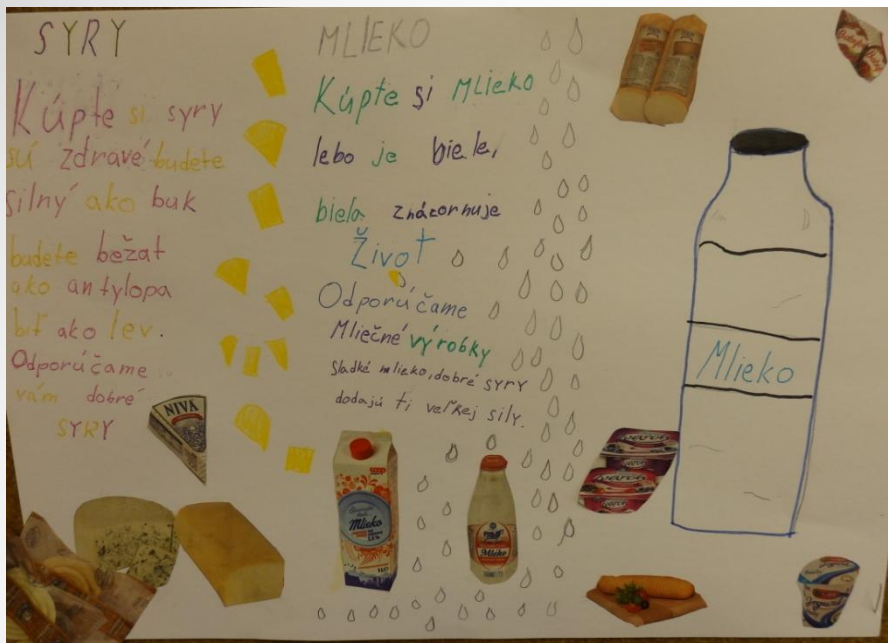 SYRY
Kúpte si syry
sú zdravé budete
silný ako buk
budete bežat
ako antylopa
biť ako lev.
Odporúčame
vám dobré
SYRY
MLIEKO
Kúpte si Mlieko
lebo je biele,
biela znázornuje
Život
Odporúčame
Mliečné výrobky
sladké mlieko, dobré syry
dodajú ti veľkej sily.
NIVA
Mlieko
Mlieko
Mlieko